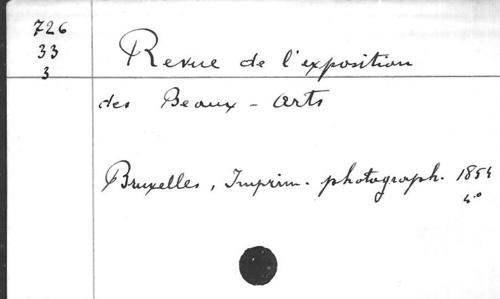 726
33
3
Revue de l'exposition
des Beaux-Arts
Bruxelles, Imprim. photograph. 1854
4°